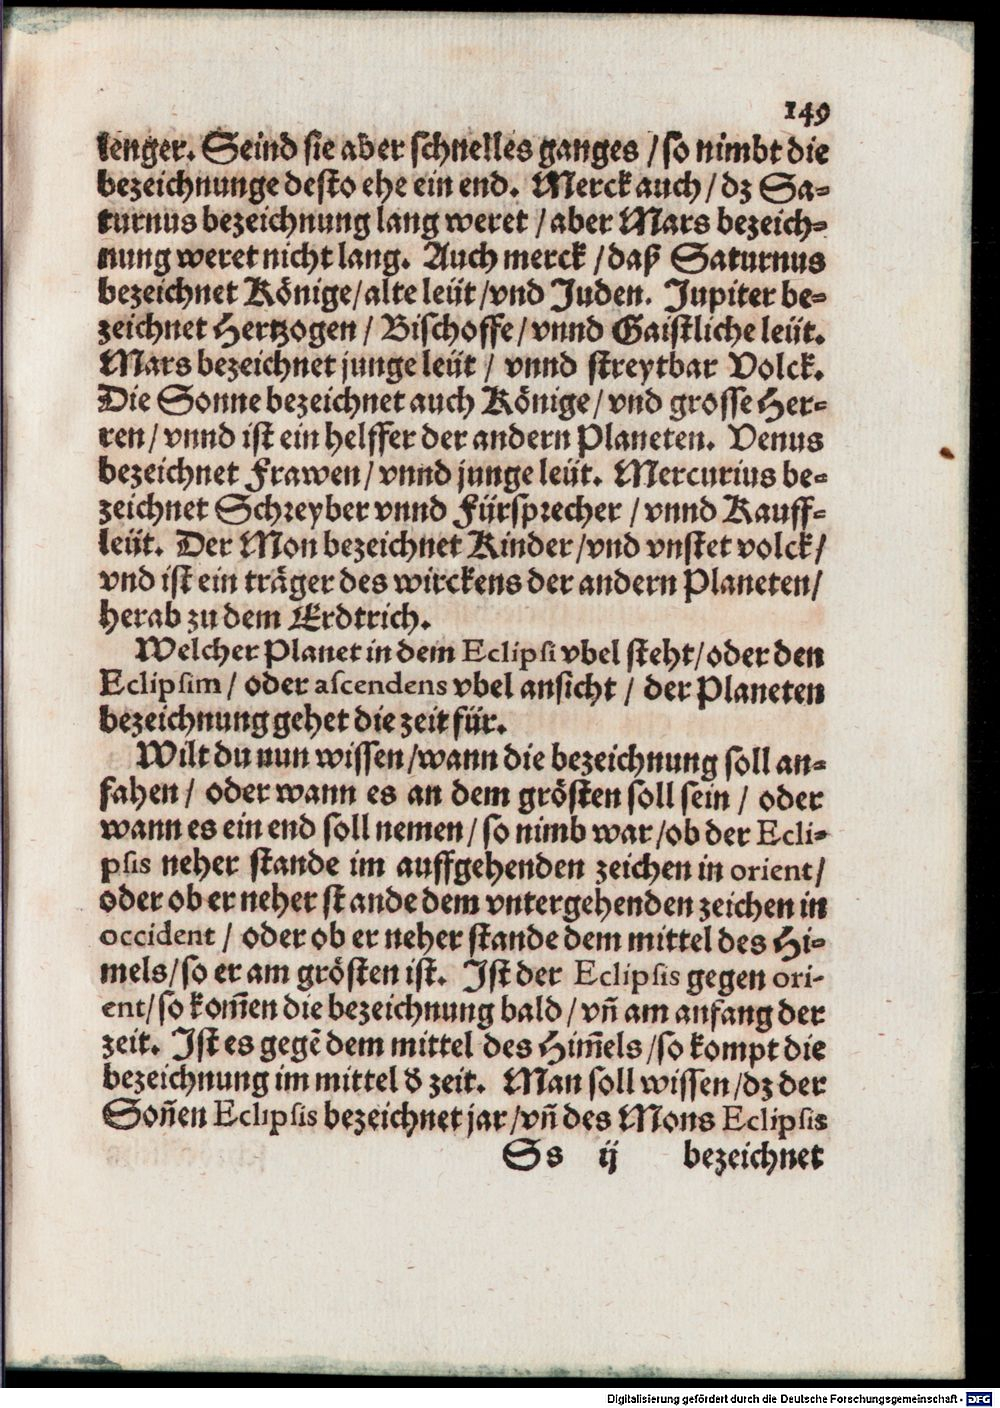 149
lenger. Seind sie aber schnelles ganges / so nimbt die
bezeichnunge desto ehe ein end. Merck auch / dz Sa-
turnus bezeichnung lang weret / aber Mars bezeich-
nung weret nicht lang. Auch merck / daß Saturnus
bezeichnet Könige / alte leüt / vnd Juden. Jupiter be-
zeichnet Hertzogen / Bischoffe / vnnd Gaistliche leüt.
Mars bezeichnet junge leüt / vnnd streytbar Volck.
Die Sonne bezeichnet auch Könige / vnd grosse Her-
ren / vnnd ist ein helffer der andern Planeten. Venus
bezeichnet Frawen / vnnd junge leüt. Mercurius be-
zeichnet Schreyber vnnd Fürsprecher / vnnd Kauff-
leüt. Der Mon bezeichnet Kinder / vnd vnstet volck /
vnd ist ein träger des wirckens der andern Planeten /
herab zu dem Erdtrich.
Welcher Planet in dem Eclipsi vbel steht / oder den
Eclipsim / oder ascendens vbel ansicht / der Planeten
bezeichnung gehet die zeit für.
Wilt du nun wissen / wann die bezeichnung soll an-
fahen / oder wann es an dem grösten soll sein / oder
wann es ein end soll nemen / so nimb war / ob der Ecli-
psis neher stande im auffgehenden zeichen in orient /
oder ob er neher stande dem vntergehenden zeichen in
occident / oder ob er neher stande dem mittel des Hi-
mels / so er am grösten ist. Ist der Eclipsis gegen ori-
ent / so kom̃en die bezeichnung bald / vñ am anfang der
zeit. Ist es gegẽ dem mittel des Him̃els / so kompt die
bezeichnung im mittel d̕ zeit. Man soll wissen / dz der
Soñen Eclipsis bezeichnet jar / vñ des Mons Eclipsis
Ss ij bezeichnet
Digitalisierung gefördert durch die Deutsche Forschungsgemeinschaft - DFG